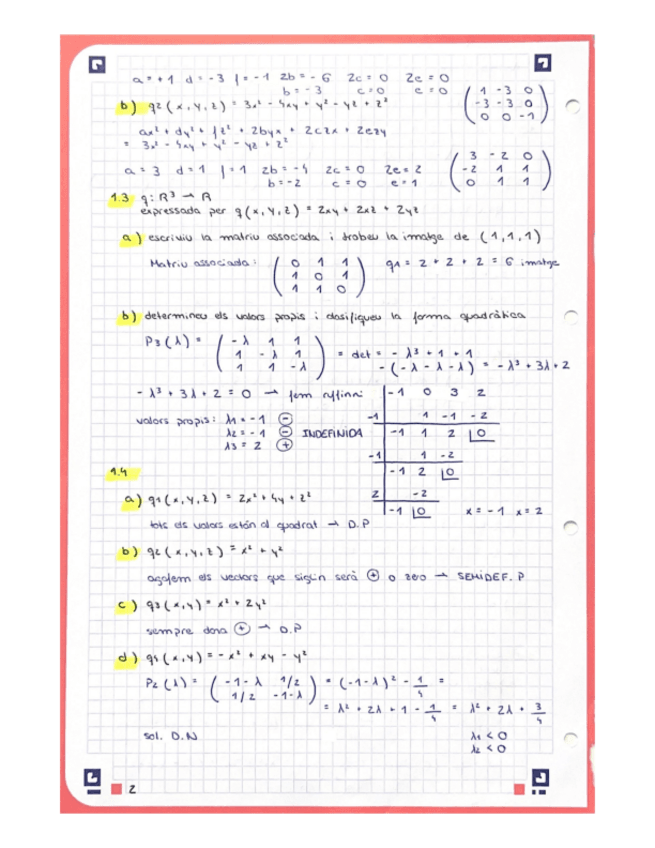 a = +1 d = -3 f = -1 2b = -6 2c = 0 2e = 0
b = -3 c = 0 e = 0
( 1 -3 0
-3 -3 0
0 0 -1 )
b) q2 (x, y, z) = 3x² - 4xy + y² - yz + z²
ax² + dy² + fz² + 2byx + 2czx + 2ezy
= 3x² - 4xy + y² - yz + z²
a = 3 d = 1 f = 1 2b = -4 2c = 0 2e = 2
b = -2 c = 0 e = 1
( 3 -2 0
-2 1 1
0 1 1 )
1.3 q: R³ → R
expressada per q(x, y, z) = 2xy + 2xz + 2yz
a) escriviu la matriu associada i trobeu la imatge de (1,1,1)
Matriu associada: ( 0 1 1
1 0 1
1 1 0 ) q1 = 2 + 2 + 2 = 6 imatge
b) determineu els valors propis i clasifiqueu la forma quadràtica
P3(λ) = ( -λ 1 1
1 -λ 1
1 1 -λ ) = det = -λ³ + 1 + 1
-(-λ -λ -λ) = -λ³ + 3λ + 2
-λ³ + 3λ + 2 = 0 → fem ruffini:
-1 0 3 2
-1 1 -1 -2
-1 1 2 0
-1 1 -2
-1 2 0
2 -2
-1 0 x = -1 x = 2
valors propis: λ1 = -1 ⊖
λ2 = -1 ⊖ INDEFINIDA
λ3 = 2 ⊕
1.4
a) q1 (x, y, z) = 2x² + 4y + z²
tots els valors están al quadrat → D.P
b) q2 (x, y, z) = x² + y²
agafem els vectors que sigun serà ⊕ o zero → SEMIDEF. P
c) q3 (x, y) = x² + 2y²
sempre dona ⊕ → D.P
d) q4 (x, y) = -x² + xy - y²
P2(λ) = ( -1-λ 1/2
1/2 -1-λ ) = (-1-λ)² - 1/4 =
= λ² + 2λ + 1 - 1/4 = λ² + 2λ + 3/4
sol. D.N
λ1 < 0
λ2 < 0
2